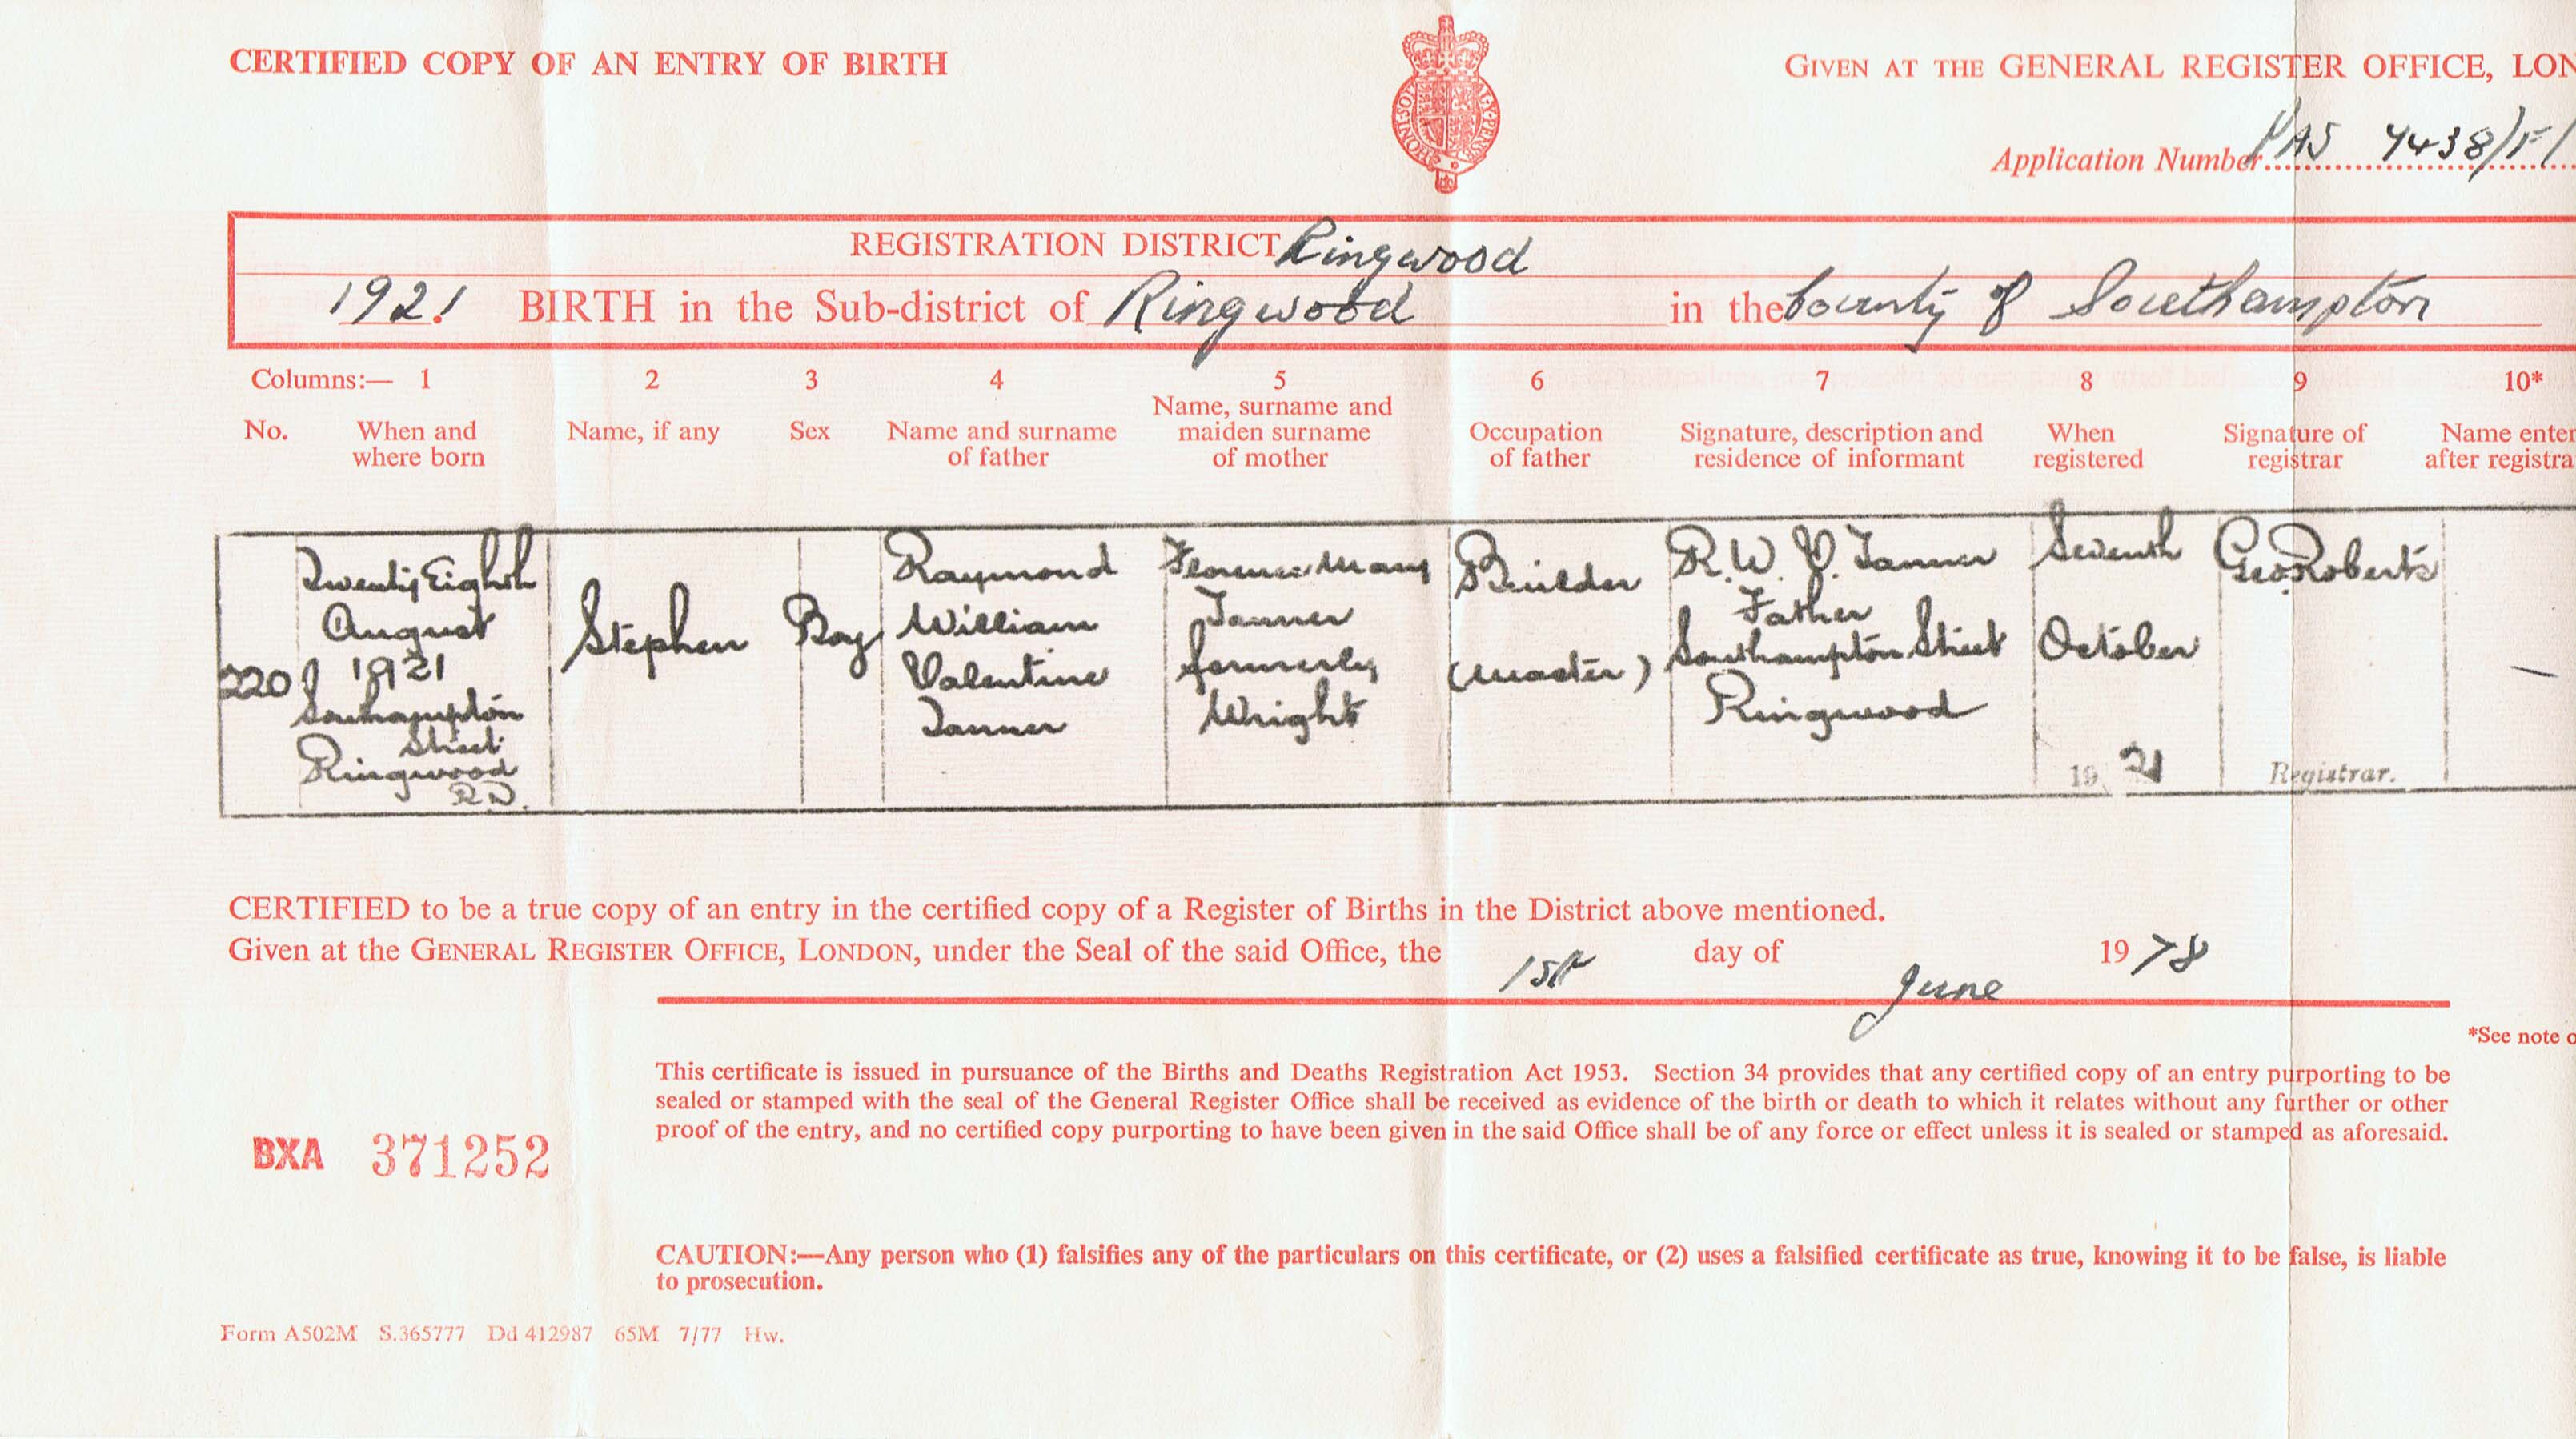 CERTIFIED COPY OF AN ENTRY OF BIRTH
GIVEN AT THE GENERAL REGISTER OFFICE, LON
Application Number PAS 7438/F/
REGISTRATION DISTRICT Ringwood
1921. BIRTH in the Sub-district of Ringwood in the County of Southampton
Columns:— 1 2 3 4 5 6 7 8 9 10*
No.
When and
where born
Name, if any
Sex
Name and surname
of father
Name, surname and
maiden surname
of mother
Occupation
of father
Signature, description and
residence of informant
When
registered
Signature of
registrar
Name enter
after registra
220
Twenty Eighth
August
1921
Southampton
Street
Ringwood
R.D.
Stephen
Boy
Raymond
William
Valentine
Tanner
Florence Mary
Tanner
formerly
Wright
Builder
(Master)
R. W. V. Tanner
Father
Southampton Street
Ringwood
Seventh
October
1921
Geo Roberts
Registrar.
—
CERTIFIED to be a true copy of an entry in the certified copy of a Register of Births in the District above mentioned.
Given at the GENERAL REGISTER OFFICE, LONDON, under the Seal of the said Office, the 1st day of June 1978
*See note o
This certificate is issued in pursuance of the Births and Deaths Registration Act 1953. Section 34 provides that any certified copy of an entry purporting to be
sealed or stamped with the seal of the General Register Office shall be received as evidence of the birth or death to which it relates without any further or other
proof of the entry, and no certified copy purporting to have been given in the said Office shall be of any force or effect unless it is sealed or stamped as aforesaid.
BXA 371252
CAUTION:—Any person who (1) falsifies any of the particulars on this certificate, or (2) uses a falsified certificate as true, knowing it to be false, is liable
to prosecution.
Form A502M S.365777 Dd 412987 65M 7/77 Hw.